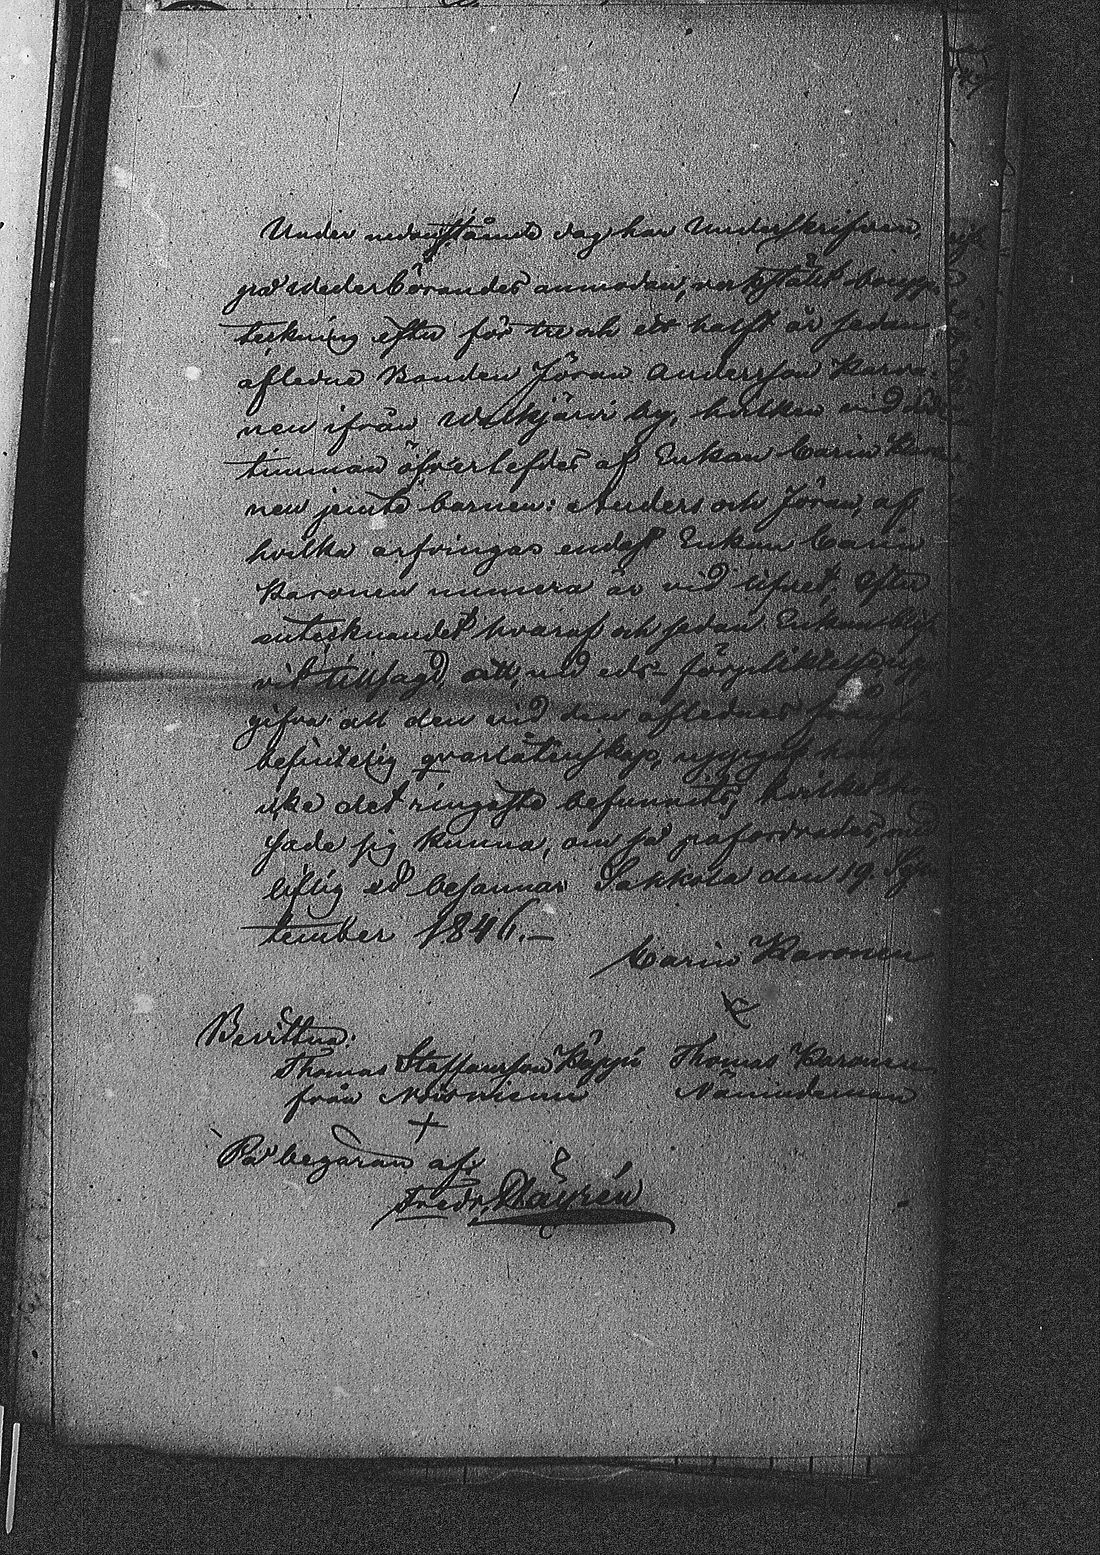 Under nedanstående dag har Underskrifven,
på Wederbörandes anmodan, verkstält boupp-
teckning efter för tre och ett halft år sedan
afledne Bonden Jöran Andersson Karo-
nen ifrån Walkjärvi by, hvilken vid död-
timman öfverlefdes af Enkan Carin Karo-
nen jemte barnen: Anders och Jöran, af
hvilka arfvingar endast Enkan Carin
Karonen numera är vid lifvet, efter
antecknandet hvaraf och sedan Enkan blif-
vit tillsagd, att, vid eds-förpliktelse upp-
gifva all den vid den aflednes frånfälle
befintelig qvarlåtenskap, uppgaf hon
icke det ringeste befunnits, hvilket hon
sade sig kunna, om så påfordrades, med
liflig ed besanna. Sakkola den 19. Sep-
tember 1846.-
Carin Karonen
Bevittna:
Thomas Staffansson Thomas Karonen
från Nämndeman
På begäran af:
Fredr.